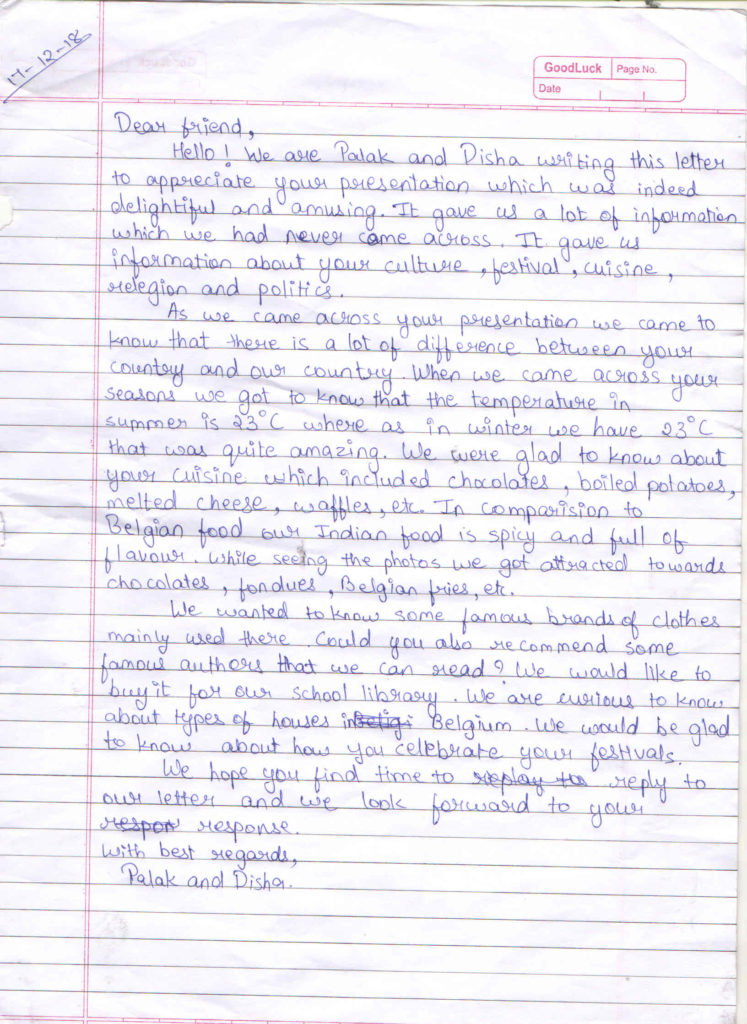 17-12-18
GoodLuck Page No.
Date
Dear friend,
Hello! We are Palak and Disha writing this letter
to appreciate your presentation which was indeed
delightiful and amusing. It gave us a lot of information
which we had never came across. It gave us
information about your culture, festival, cuisine,
relegion and politics.
As we came across your presentation we came to
know that there is a lot of difference between your
country and our country. When we came across your
seasons we got to know that the temperature in
summer is 23°C where as in winter we have 23°C
that was quite amazing. We were glad to know about
your cuisine which included chocolates, boiled potatoes,
melted cheese, waffles, etc. In comparision to
Belgian food our Indian food is spicy and full of
flavour. While seeing the photos we got attracted towards
chocolates, fondues, Belgian fries, etc.
We wanted to know some famous brands of clothes
mainly used there. Could you also recommend some
famous authors that we can read? We would like to
buy it for our school library. We are curious to know
about types of houses in Belgium. We would be glad
to know about how you celebrate your festivals.
We hope you find time to replay to reply to
our letter and we look forward to your
respon response.
With best regards,
Palak and Disha.